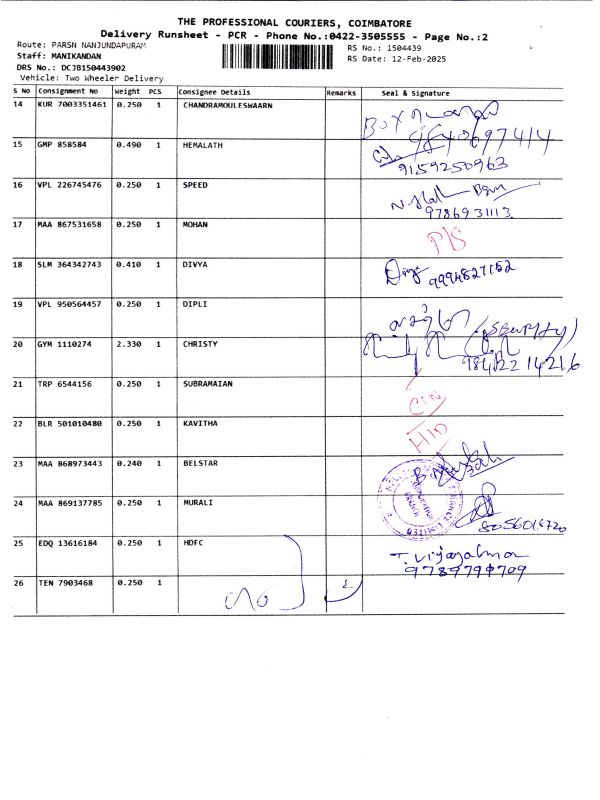 THE PROFESSIONAL COURIERS, COIMBATORE
Delivery Runsheet - PCR - Phone No.:0422-3505555 - Page No.:2
Route: PARSN NANJUNDAPURAM
RS No.: 1504439
Staff: MANIKANDAN
RS Date: 12-Feb-2025
DRS No.: DCJB150443902
Vehicle: Two Wheeler Delivery
S No Consignment No Weight PCS Consignee Details Remarks Seal & Signature
14 KUR 7003351461 0.250 1 CHANDRAMOULESWAARN
9840697414
15 GMP 858584 0.490 1 HEMALATH
9159250963
16 VPL 226745476 0.250 1 SPEED
9786931113
17 MAA 867531658 0.250 1 MOHAN
P/S
18 SLM 364342743 0.410 1 DIVYA
9994827152
19 VPL 950564457 0.250 1 DIPLI
20 GYM 1110274 2.330 1 CHRISTY
21 TRP 6544156 0.250 1 SUBRAMAIAN
22 BLR 501010480 0.250 1 KAVITHA
23 MAA 868973443 0.240 1 BELSTAR
24 MAA 869137785 0.250 1 MURALI
25 EDQ 13616184 0.250 1 HDFC
9789790709
26 TEN 7903468 0.250 1